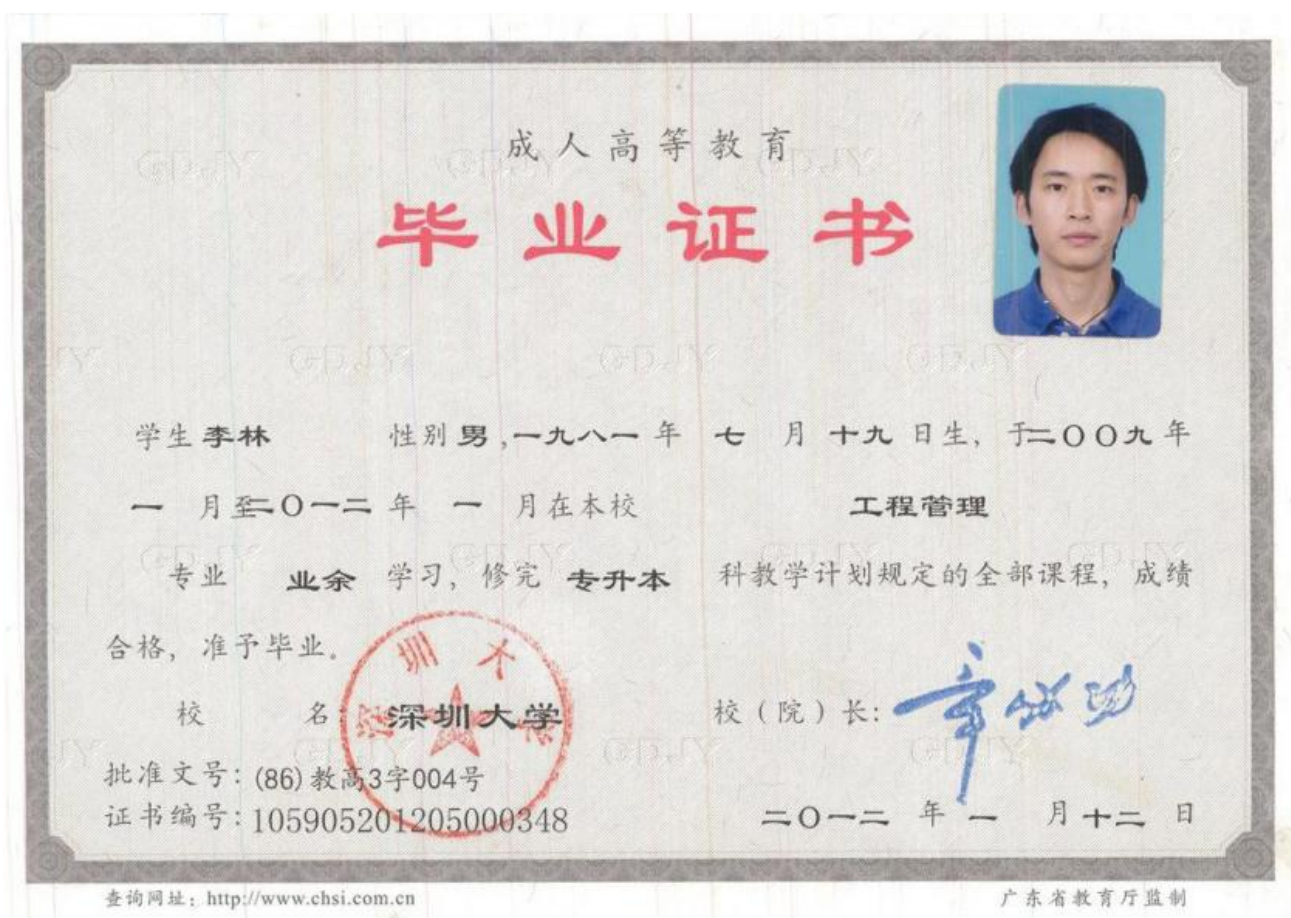 成人高等教育
毕业证书
学生 李林 性别 男 , 一九八一 年 七 月 十九 日生, 于二〇〇九 年
一 月至二〇一二 年 一 月在本校 工程管理
专业 业余 学习, 修完 专升本 科教学计划规定的全部课程, 成绩
合格, 准予毕业。
校 名: 深圳大学 校(院)长:
批准文号: (86)教高3字004号
证书编号: 105905201205000348 二〇一二 年 一 月 十二 日
查询网址: http://www.chsi.com.cn 广东省教育厅监制
深圳大学
GDJY